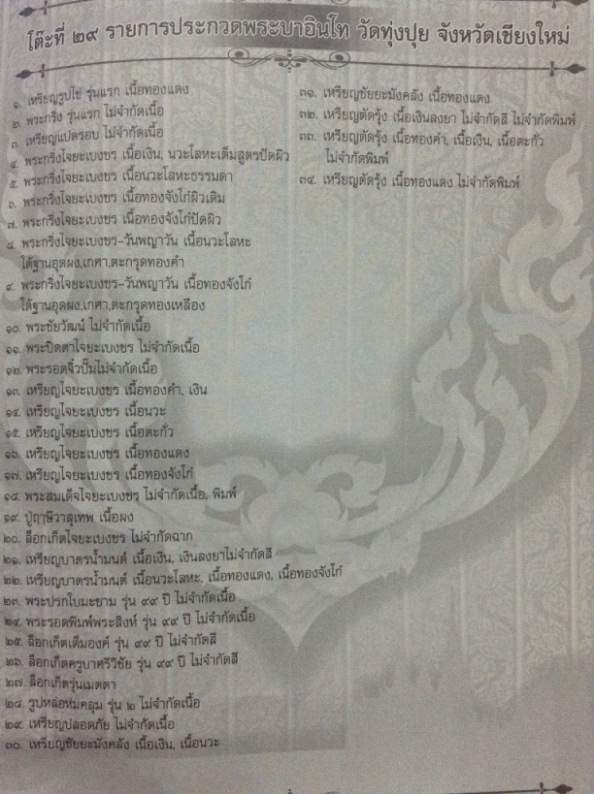 โต๊ะที่ ๒๙ รายการประกวดพระบาอินโท วัดทุ่งปุย จังหวัดเชียงใหม่
๑. เหรียญรูปไข่ รุ่นแรก เนื้อทองแดง
๒. พระกริ่ง รุ่นแรก ไม่จำกัดเนื้อ
๓. เหรียญแปดรอบ ไม่จำกัดเนื้อ
๔. พระกริ่งไจยะเบงชร เนื้อเงิน, นวะโลหะเต็มสูตรปัดผิว
๕. พระกริ่งไจยะเบงชร เนื้อนวะโลหะธรรมดา
๖. พระกริ่งไจยะเบงชร เนื้อทองจังโก๋ผิวเดิม
๗. พระกริ่งไจยะเบงชร เนื้อทองจังโก๋ปัดผิว
๘. พระกริ่งไจยะเบงชร-วันพญาวัน เนื้อนวะโลหะ
ใต้ฐานอุดผง,เกศา,ตะกรุดทองคำ
๙. พระกริ่งไจยะเบงชร-วันพญาวัน เนื้อทองจังโก๋
ใต้ฐานอุดผง,เกศา,ตะกรุดทองเหลือง
๑๐. พระชัยวัฒน์ ไม่จำกัดเนื้อ
๑๑. พระปิดตาไจยะเบงชร ไม่จำกัดเนื้อ
๑๒. พระรอดจิ๋วปั๊มไม่จำกัดเนื้อ
๑๓. เหรียญไจยะเบงชร เนื้อทองคำ, เงิน
๑๔. เหรียญไจยะเบงชร เนื้อนวะ
๑๕. เหรียญไจยะเบงชร เนื้อตะกั่ว
๑๖. เหรียญไจยะเบงชร เนื้อทองแดง
๑๗. เหรียญไจยะเบงชร เนื้อทองจังโก๋
๑๘. พระสมเด็จไจยะเบงชร ไม่จำกัดเนื้อ, พิมพ์
๑๙. ปู่ฤาษีวาสุเทพ เนื้อผง
๒๐. ล็อกเก็ตไจยะเบงชร ไม่จำกัดฉาก
๒๑. เหรียญบาตรน้ำมนต์ เนื้อเงิน, เงินลงยาไม่จำกัดสี
๒๒. เหรียญบาตรน้ำมนต์ เนื้อนวะโลหะ, เนื้อทองแดง, เนื้อทองจังโก๋
๒๓. พระปรกใบมะขาม รุ่น ๙๙ ปี ไม่จำกัดเนื้อ
๒๔. พระรอดพิมพ์พระสิงห์ รุ่น ๙๙ ปี ไม่จำกัดเนื้อ
๒๕. ล็อกเก็ตเต็มองค์ รุ่น ๙๙ ปี ไม่จำกัดสี
๒๖. ล็อกเก็ตครูบาศรีวิชัย รุ่น ๙๙ ปี ไม่จำกัดสี
๒๗. ล็อกเก็ตรุ่นเมตตา
๒๘. รูปหล่อห่มคลุม รุ่น ๒ ไม่จำกัดเนื้อ
๒๙. เหรียญปลอดภัย ไม่จำกัดเนื้อ
๓๐. เหรียญชัยยะมังคลัง เนื้อเงิน, เนื้อนวะ
๓๑. เหรียญชัยยะมังคลัง เนื้อทองแดง
๓๒. เหรียญตัดรุ้ง เนื้อเงินลงยา ไม่จำกัดสี ไม่จำกัดพิมพ์
๓๓. เหรียญตัดรุ้ง เนื้อทองคำ, เนื้อเงิน, เนื้อตะกั่ว
ไม่จำกัดพิมพ์
๓๔. เหรียญตัดรุ้ง เนื้อทองแดง ไม่จำกัดพิมพ์